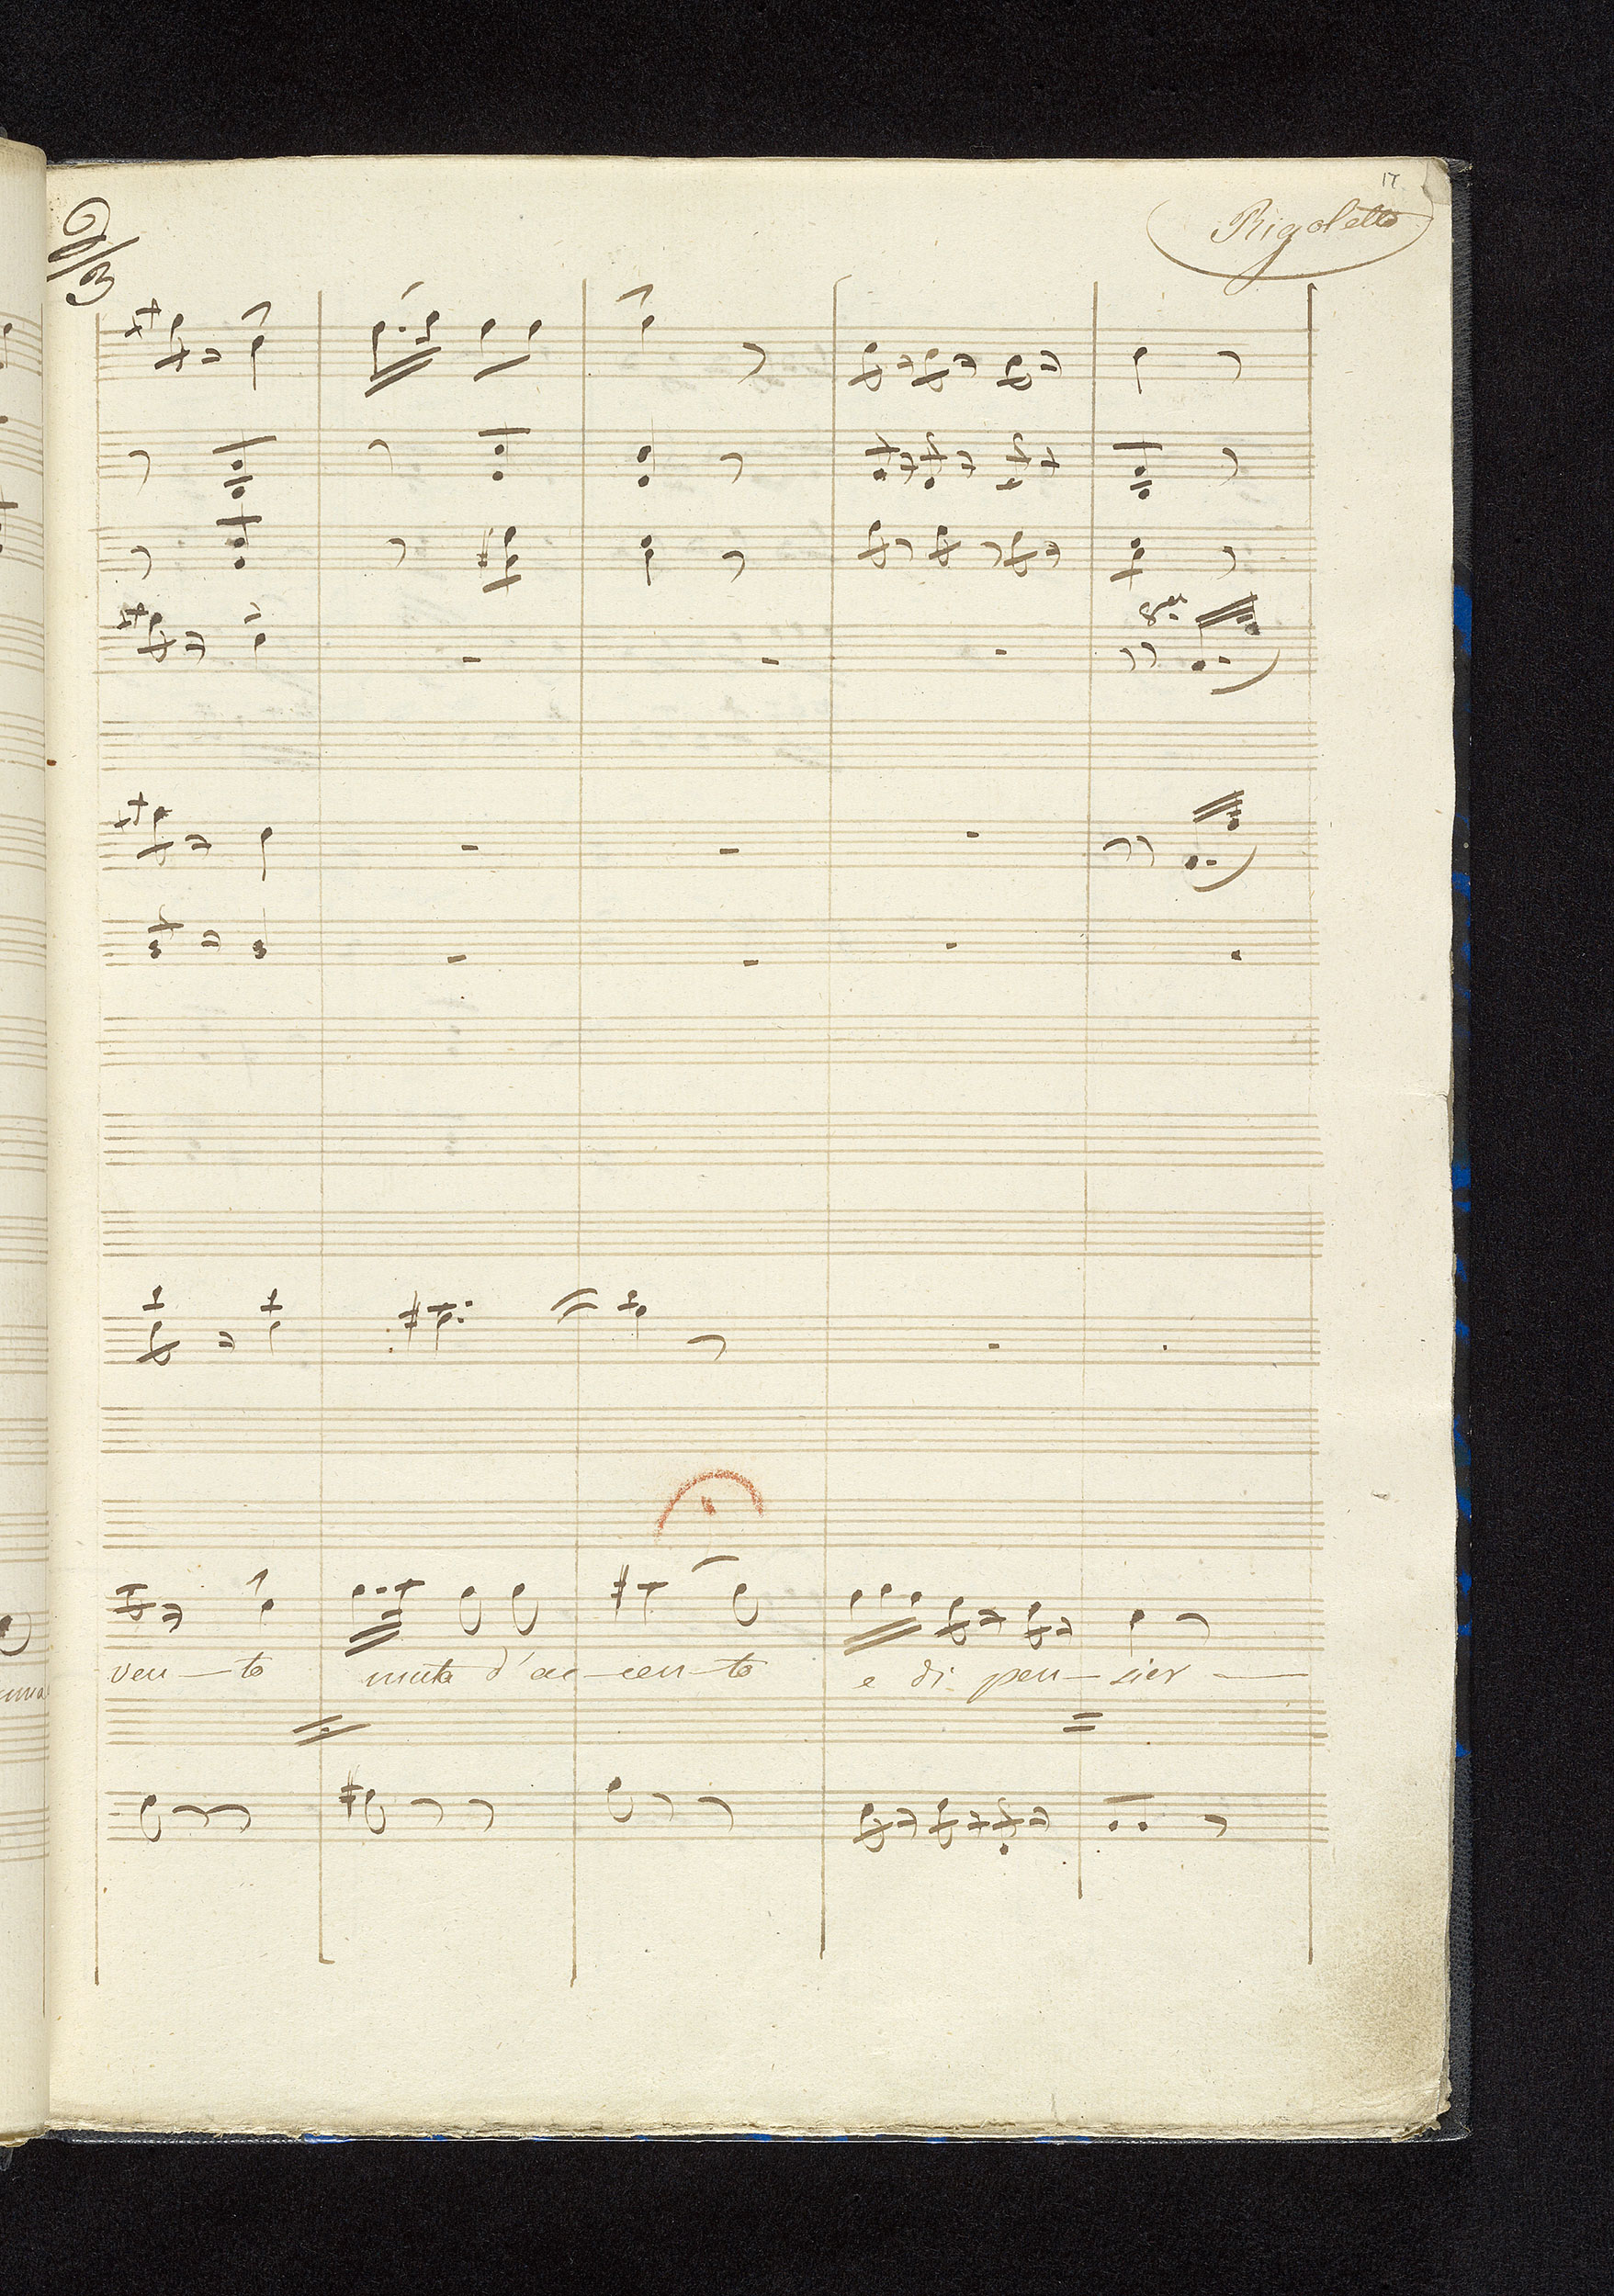 17
Rigoletto
8va
ven—to muta d'ac—cen—to e di pen—sier —